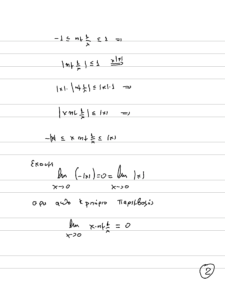 -1 ≤ ημ 1/x ≤ 1 ⇒
|ημ 1/x| ≤ 1 x|x|
|x|·|ημ 1/x| ≤ |x|·1 ⇒
|x ημ 1/x| ≤ |x| ⇒
-|x| ≤ x ημ 1/x ≤ |x|
Εχουμε
lim (-|x|)=0= lim |x|
x→0 x→0
αρα από κριτήριο Παρεμβολής
lim x·ημ 1/x = 0
x→0
2